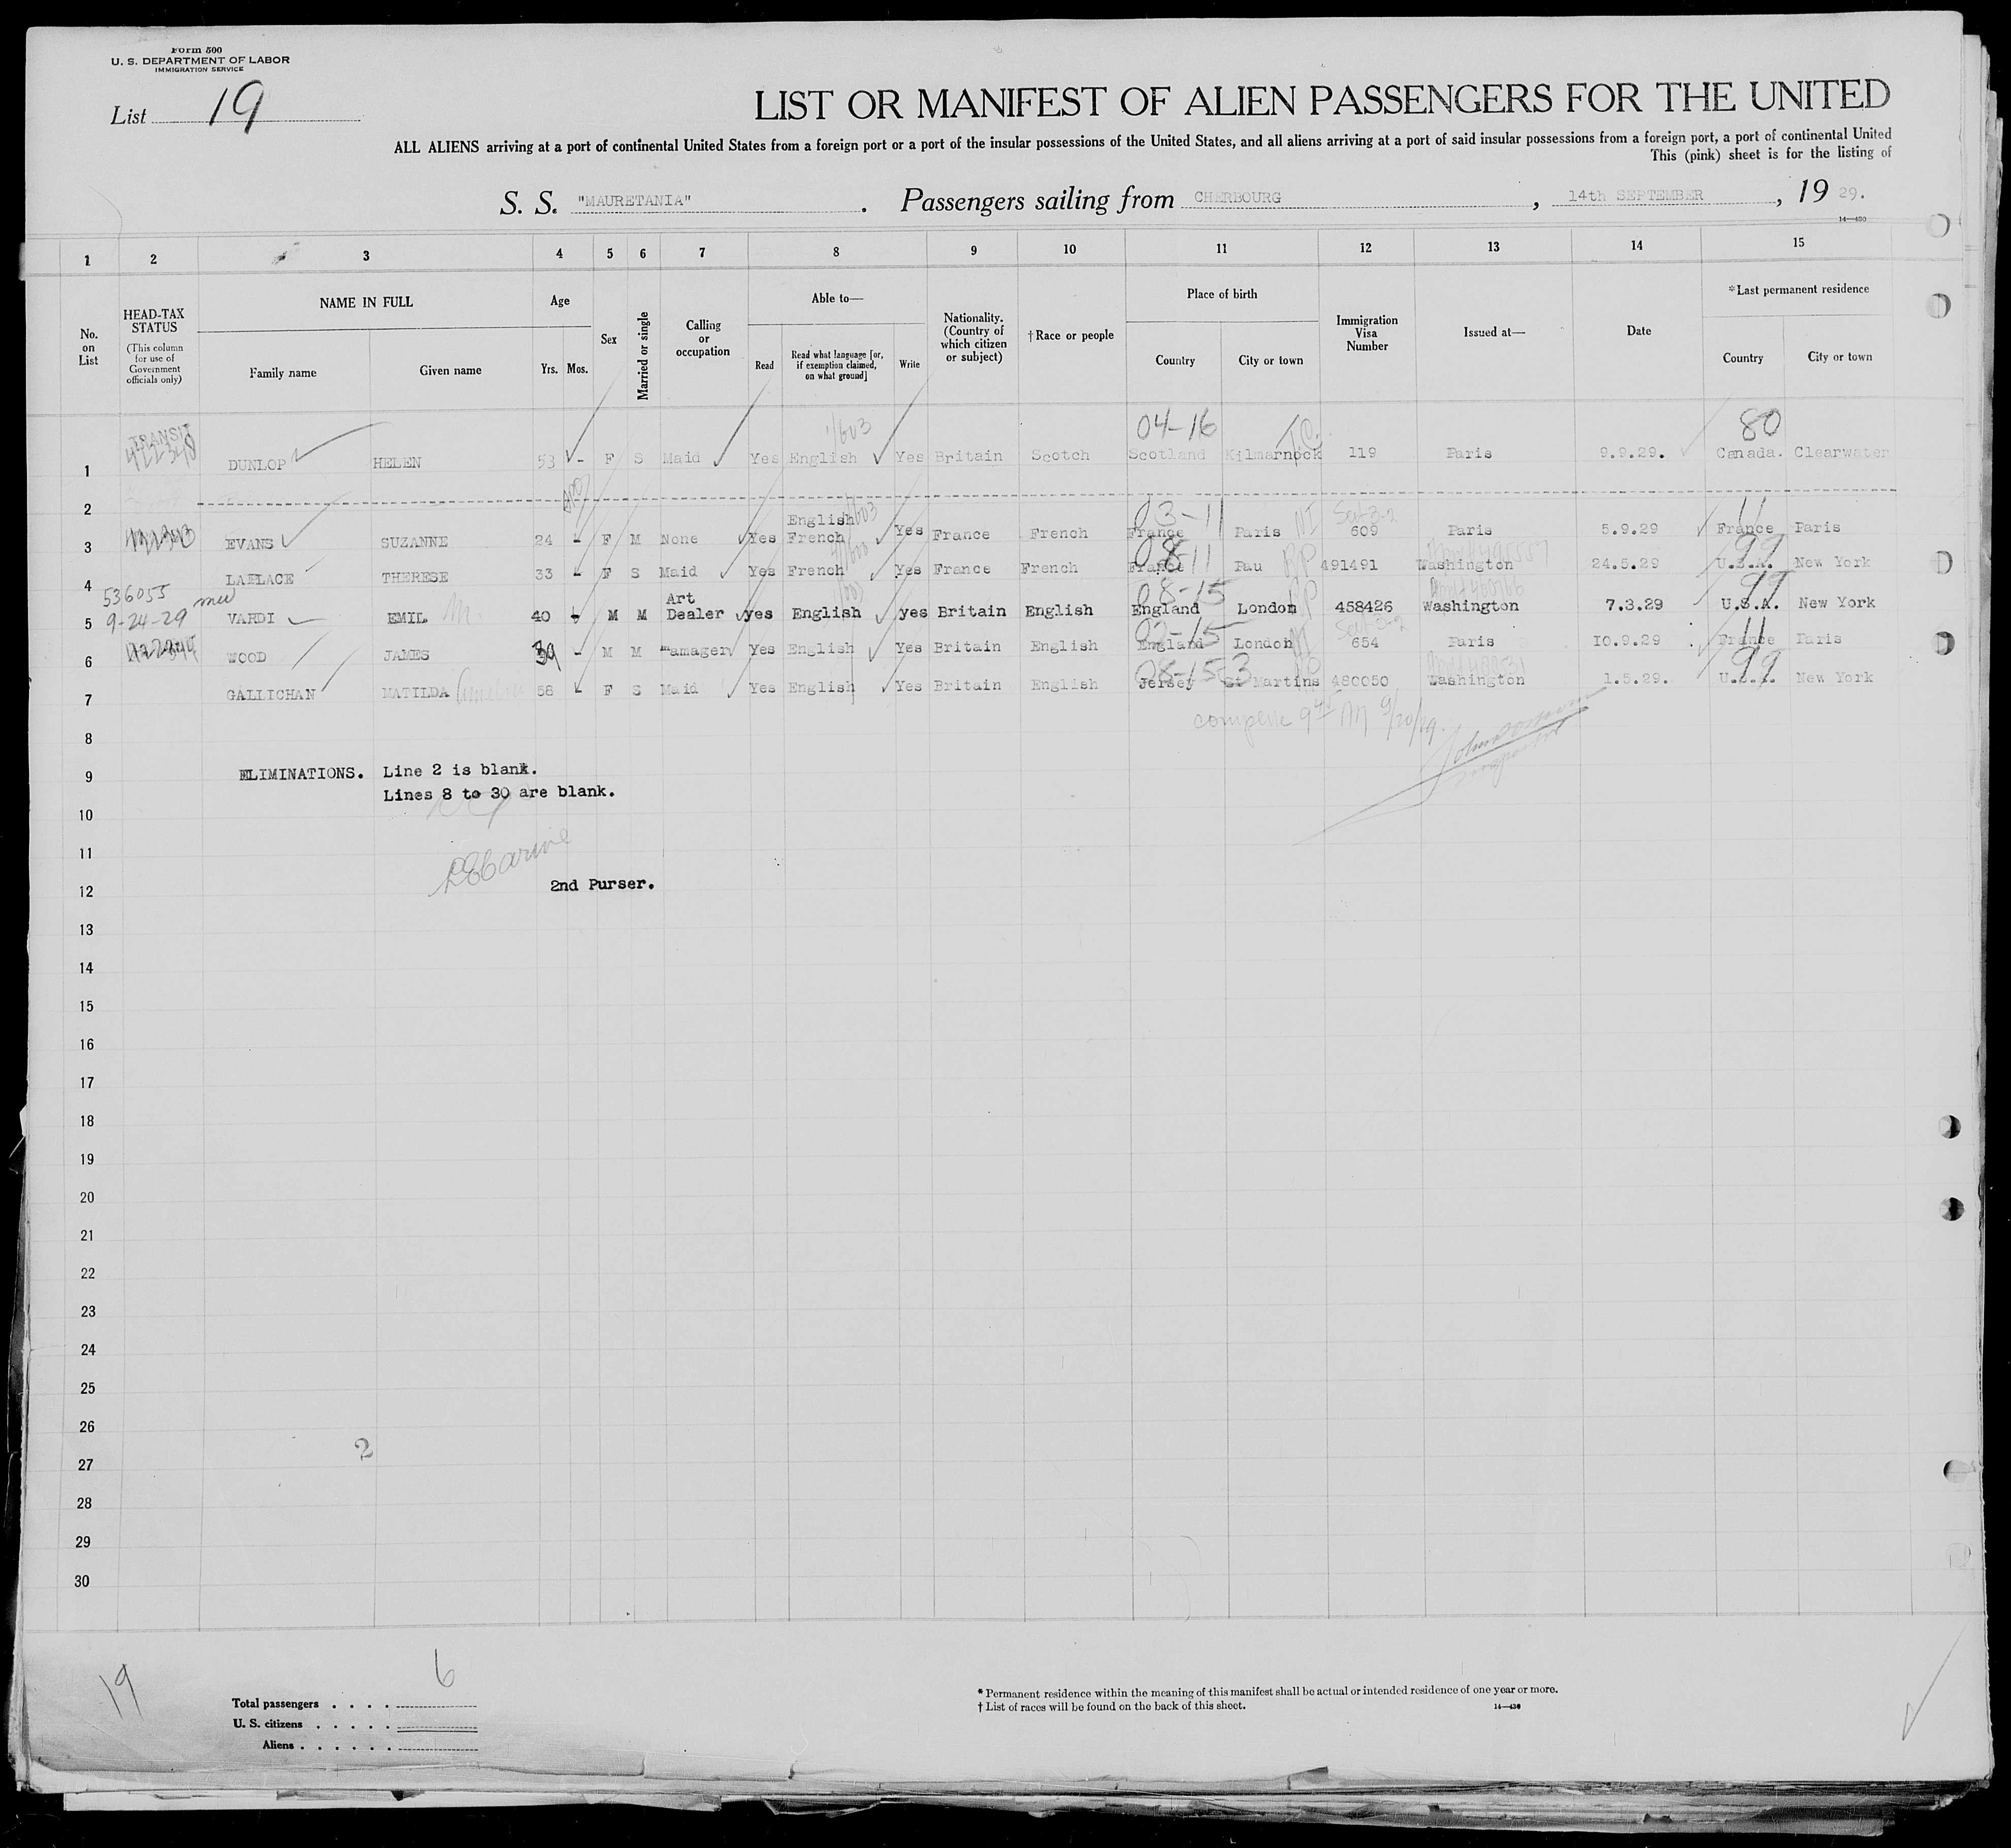 Form 500
U. S. DEPARTMENT OF LABOR
IMMIGRATION SERVICE
List 19
LIST OR MANIFEST OF ALIEN PASSENGERS FOR THE UNITED
ALL ALIENS arriving at a port of continental United States from a foreign port or a port of the insular possessions of the United States, and all aliens arriving at a port of said insular possessions from a foreign port, a port of continental United
This (pink) sheet is for the listing of
S. S. "MAURETANIA". Passengers sailing from CHERBOURG, 14th SEPTEMBER, 19 29.
14—430
1 2 3 4 5 6 7 8 9 10 11 12 13 14 15
No. on List
HEAD-TAX STATUS
(This column for use of Government officials only)
NAME IN FULL
Family name Given name
Age
Yrs. Mos.
Sex
Married or single
Calling or occupation
Able to—
Read
Read what language [or, if exemption claimed, on what ground]
Write
Nationality. (Country of which citizen or subject)
†Race or people
Place of birth
Country City or town
Immigration Visa Number
Issued at—
Date
*Last permanent residence
Country City or town
04-16 80
TRANSIT
1 DUNLOP HELEN 53 - F S Maid Yes English Yes Britain Scotch Scotland Kilmarnock 119 Paris 9.9.29. Canada. Clearwater
2
03-11 11
3 EVANS SUZANNE 24 - F M None Yes English French Yes France French France Paris 609 Paris 5.9.29 France Paris
08-11 99
4 LAPLACE THERESE 33 - F S Maid Yes French Yes France French France Pau 491491 Washington 24.5.29 U.S.A. New York
536055
9-24-29
08-15 99
5 VARDI EMIL M. 40 - M M Art Dealer yes English yes Britain English England London 458426 Washington 7.3.29 U.S.A. New York
11
6 WOOD JAMES 39 - M M Manager Yes English Yes Britain English England London 654 Paris 10.9.29 France Paris
08-15 99
7 GALLICHAN MATILDA 58 - F S Maid Yes English Yes Britain English Jersey St Martins 480050 Washington 1.5.29. U.S.A. New York
9/20/29
8
9 ELIMINATIONS. Line 2 is blank.
Lines 8 to 30 are blank.
10
11
12 2nd Purser.
13
14
15
16
17
18
19
20
21
22
23
24
25
26
2
27
28
29
30
19
6
Total passengers . . . .
U. S. citizens . . . . .
Aliens . . . . . .
* Permanent residence within the meaning of this manifest shall be actual or intended residence of one year or more.
† List of races will be found on the back of this sheet.
14—430